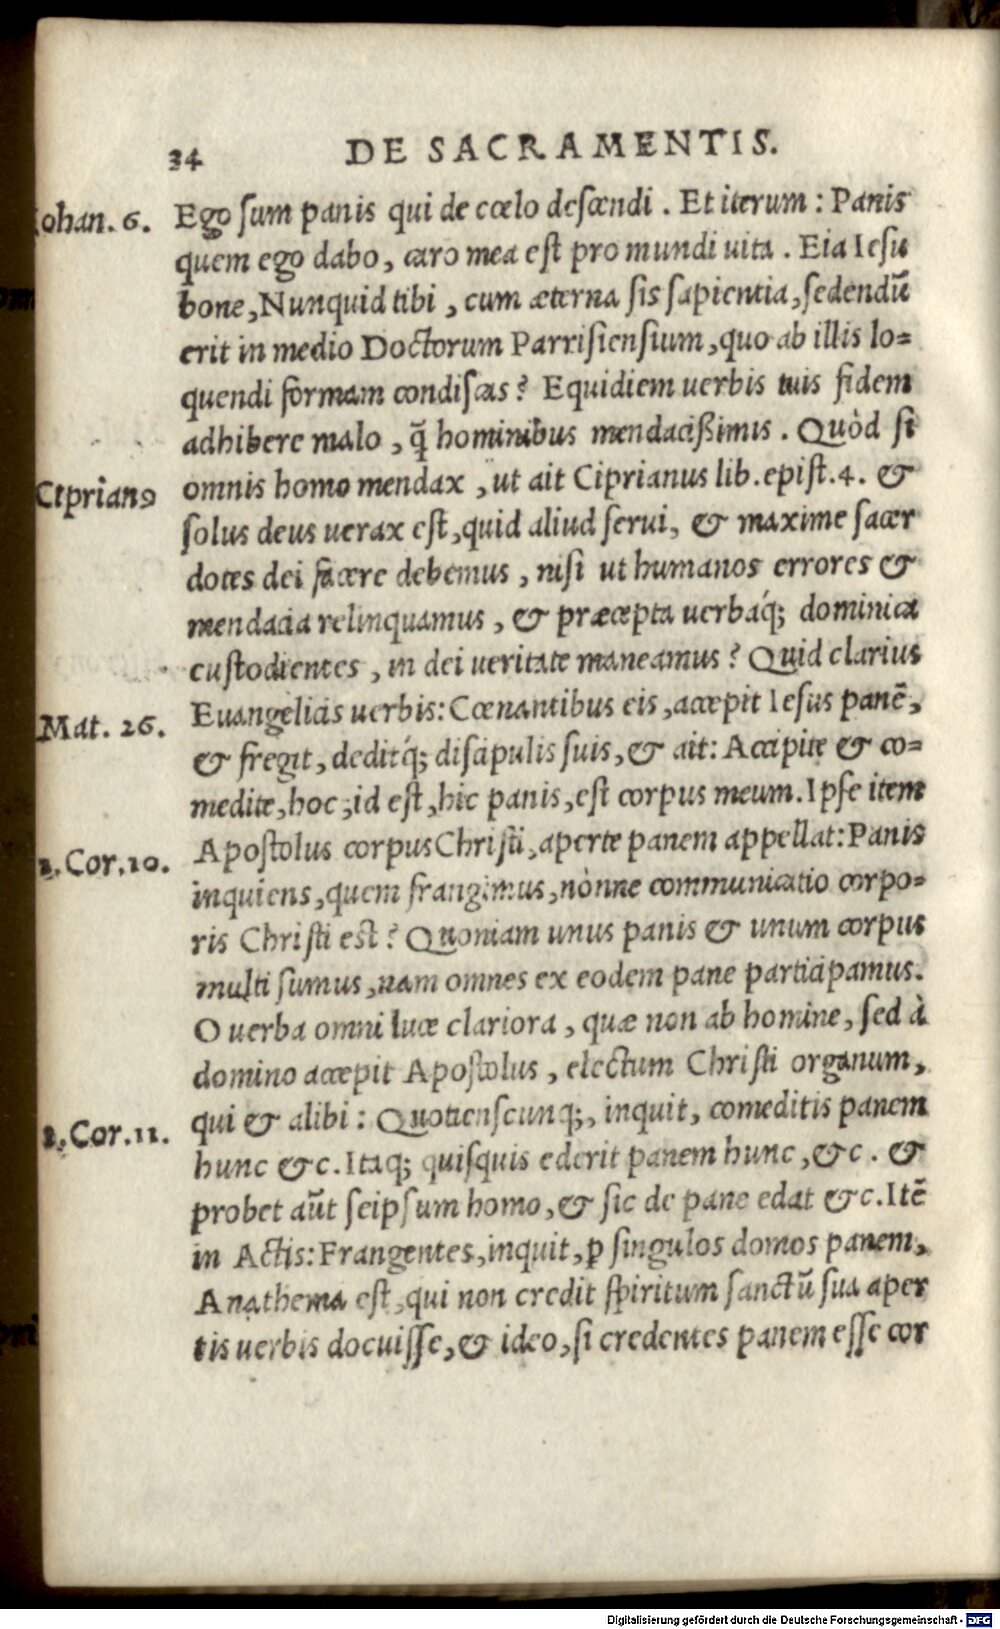 34 DE SACRAMENTIS.
Iohan. 6. Ego sum panis qui de cœlo descendi . Et iterum : Panis
quem ego dabo, caro mea est pro mundi uita . Eia Iesu
bone, Nunquid tibi , cum æterna sis sapientia, sedendũ
erit in medio Doctorum Parrisiensium, quo ab illis lo=
quendi formam condiscas? Equidiem uerbis tuis fidem
adhibere malo , q̃ hominibus mendacißimis . Quòd si
Ciprianꝰ omnis homo mendax , ut ait Ciprianus lib. epist. 4. &
solus deus uerax est, quid aliud serui, & maxime sacer
dotes dei facere debemus , nisi ut humanos errores &
mendacia relinquamus , & præcepta uerbaq́; dominica
custodientes , in dei ueritate maneamus? Quid clarius
Mat. 26. Euangelicis uerbis: Cœnantibus eis, accepit Iesus panẽ,
& fregit, deditq́; discipulis suis, & ait: Accipite & co=
medite, hoc, id est, hic panis, est corpus meum. Ipse item
1. Cor. 10. Apostolus corpus Christi, aperte panem appellat: Panis
inquiens, quem frangimus, nònne communicatio corpo=
ris Christi est? Quoniam unus panis & unum corpus
multi sumus, nam omnes ex eodem pane participamus.
O uerba omni luce clariora , quæ non ab homine, sed à
domino accepit Apostolus , electum Christi organum,
1. Cor. 11. qui & alibi : Quotienscunq;, inquit, comeditis panem
hunc &c. Itaq; quisquis ederit panem hunc, &c . &
probet aũt seipsum homo, & sic de pane edat &c. Itẽ
in Actis: Frangentes, inquit, ꝑ singulos domos panem,
Anathema est, qui non credit spiritum sanctũ sua aper
tis uerbis docuisse, & ideo, si credentes panem esse cor
Digitalisierung gefördert durch die Deutsche Forschungsgemeinschaft - DFG